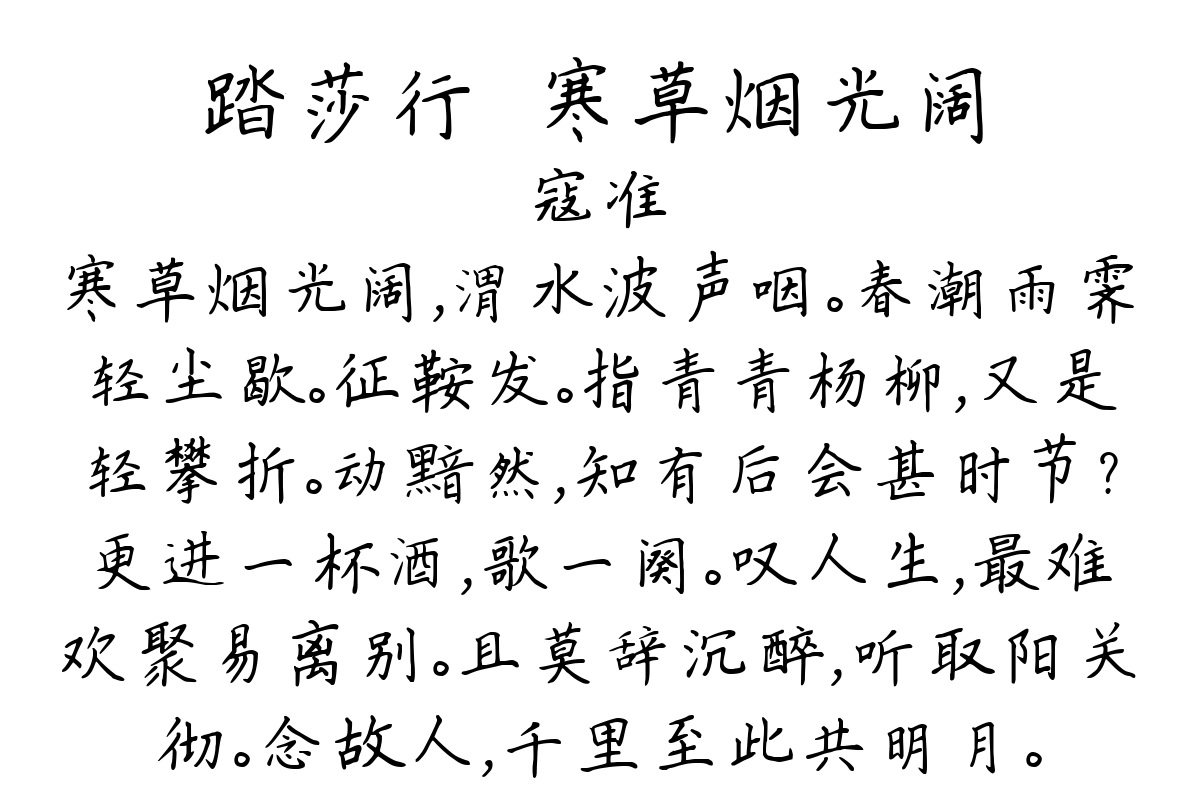 踏莎行 寒草烟光阔
寇准
寒草烟光阔,渭水波声咽。春潮雨霁
轻尘歇。征鞍发。指青青杨柳,又是
轻攀折。动黯然,知有后会甚时节?
更进一杯酒,歌一阕。叹人生,最难
欢聚易离别。且莫辞沉醉,听取阳关
彻。念故人,千里至此共明月。